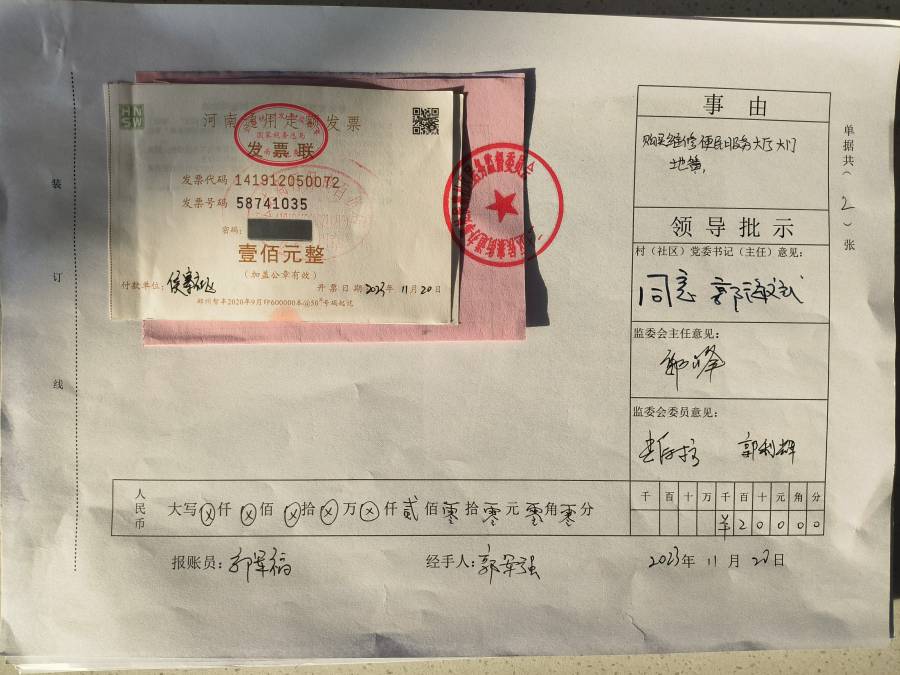 HN
SW
河南通用定额发票
国家税务总局
发票联
发票代码 141912050072
发票号码 58741035
密码:
壹佰元整
(加盖公章有效)
付款单位:
开票日期 2023年 11月 20日
事由
购买维修便民服务大厅大门
地簧,
领导批示
村(社区)党委书记(主任)意见:
同意
监委会主任意见:
监委会委员意见:
郭利辉
单据共(2)张
装订线
人民币
大写 ⊗仟 ⊗佰 ⊗拾 ⊗万 ⊗仟 贰佰 零拾 零元 零角 零分
千 百 十 万 千 百 十 元 角 分
羊 2 0 0 0 0
报账员:
经手人: 郭军强
2023年 11月 20日